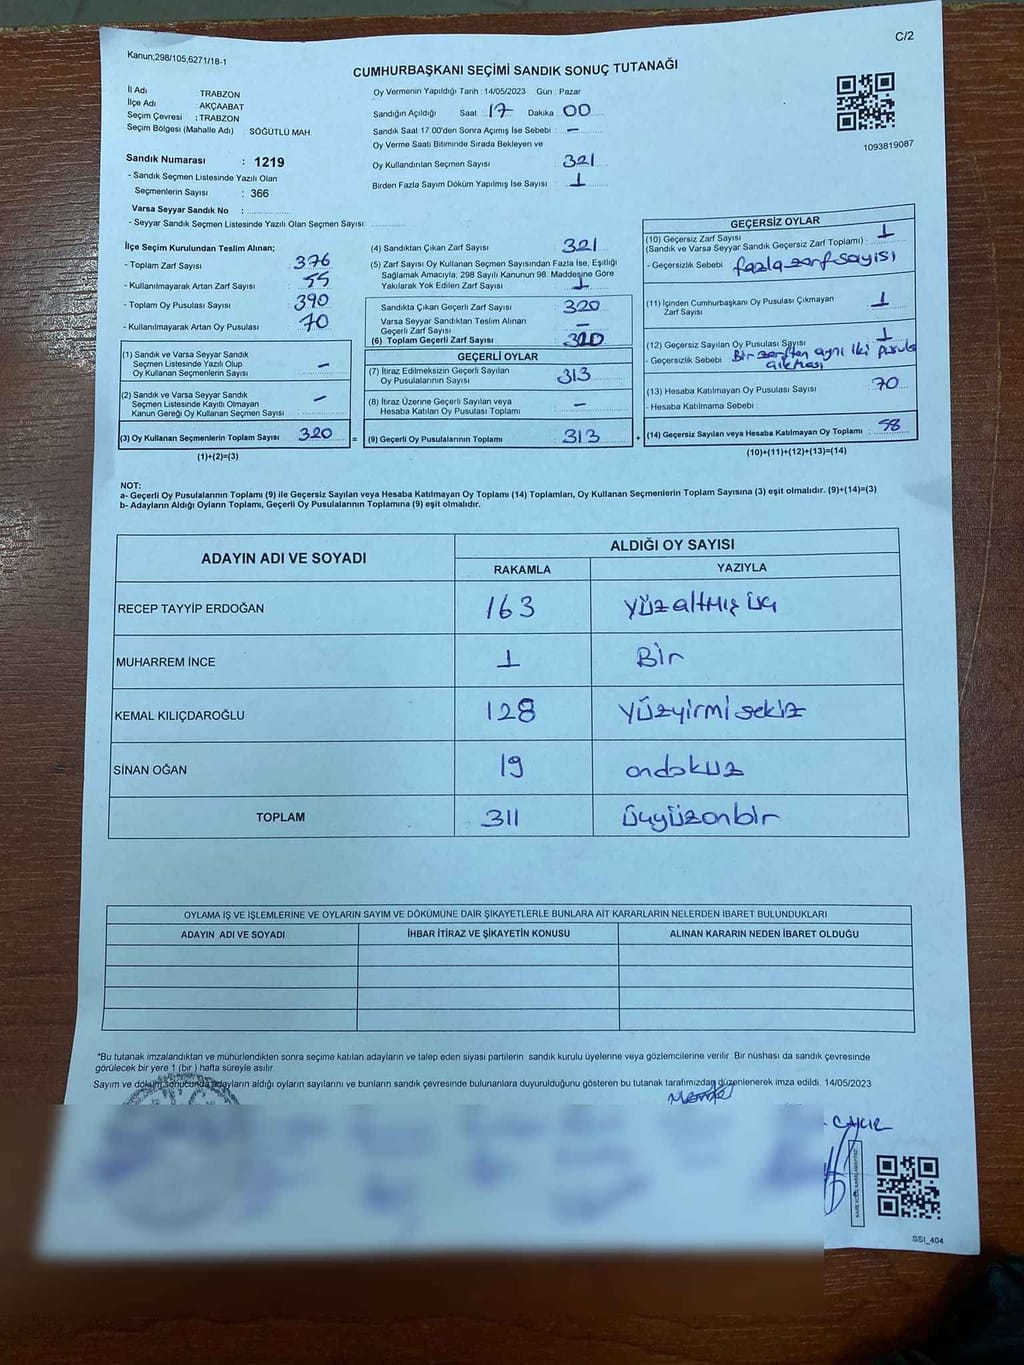 C/2
Kanun;298/105,6271/18-1
CUMHURBAŞKANI SEÇİMİ SANDIK SONUÇ TUTANAĞI
İl Adı : TRABZON
İlçe Adı : AKÇAABAT
Seçim Çevresi : TRABZON
Seçim Bölgesi (Mahalle Adı) : SÖĞÜTLÜ MAH.
Sandık Numarası : 1219
- Sandık Seçmen Listesinde Yazılı Olan
Seçmenlerin Sayısı : 366
Varsa Seyyar Sandık No :
- Seyyar Sandık Seçmen Listesinde Yazılı Olan Seçmen Sayısı:
Oy Vermenin Yapıldığı Tarih : 14/05/2023 Gün : Pazar
Sandığın Açıldığı Saat 17 Dakika 00
Sandık Saat 17:00'den Sonra Açımış İse Sebebi : -
Oy Verme Saati Bitiminde Sırada Bekleyen ve
Oy Kullandırılan Seçmen Sayısı 321
Birden Fazla Sayım Döküm Yapılmış İse Sayısı : 1
1093819087
İlçe Seçim Kurulundan Teslim Alınan;
- Toplam Zarf Sayısı : 376
- Kullanılmayarak Artan Zarf Sayısı : 55
- Toplam Oy Pusulası Sayısı : 390
- Kullanılmayarak Artan Oy Pusulası : 70
(1) Sandık ve Varsa Seyyar Sandık
Seçmen Listesinde Yazılı Olup
Oy Kullanan Seçmenlerin Sayısı : -
(2) Sandık ve Varsa Seyyar Sandık
Seçmen Listesinde Kayıtlı Olmayan
Kanun Gereği Oy Kullanan Seçmen Sayısı : -
(3) Oy Kullanan Seçmenlerin Toplam Sayısı : 320 =
(1)+(2)=(3)
(4) Sandıktan Çıkan Zarf Sayısı : 321
(5) Zarf Sayısı Oy Kullanan Seçmen Sayısından Fazla İse, Eşitliği
Sağlamak Amacıyla; 298 Sayılı Kanunun 98. Maddesine Göre
Yakılarak Yok Edilen Zarf Sayısı : 1
Sandıkta Çıkan Geçerli Zarf Sayısı : 320
Varsa Seyyar Sandıktan Teslim Alınan
Geçerli Zarf Sayısı : -
(6) Toplam Geçerli Zarf Sayısı : 320
GEÇERLİ OYLAR
(7) İtiraz Edilmeksizin Geçerli Sayılan
Oy Pusulalarının Sayısı : 313
(8) İtiraz Üzerine Geçerli Sayılan veya
Hesaba Katılan Oy Pusulası Toplamı : -
(9) Geçerli Oy Pusulalarının Toplamı : 313 +
GEÇERSİZ OYLAR
(10) Geçersiz Zarf Sayısı : 1
(Sandık ve Varsa Seyyar Sandık Geçersiz Zarf Toplamı)
- Geçersizlik Sebebi : fazla zarf sayısı
(11) İçinden Cumhurbaşkanı Oy Pusulası Çıkmayan
Zarf Sayısı : 1
(12) Geçersiz Sayılan Oy Pusulası Sayısı : 1
- Geçersizlik Sebebi : Bir zarftan aynı iki pusula
çıkması
(13) Hesaba Katılmayan Oy Pusulası Sayısı : 70
- Hesaba Katılmama Sebebi :
(14) Geçersiz Sayılan veya Hesaba Katılmayan Oy Toplamı : 58
(10)+(11)+(12)+(13)=(14)
NOT:
a- Geçerli Oy Pusulalarının Toplamı (9) ile Geçersiz Sayılan veya Hesaba Katılmayan Oy Toplamı (14) Toplamları, Oy Kullanan Seçmenlerin Toplam Sayısına (3) eşit olmalıdır. (9)+(14)=(3)
b- Adayların Aldığı Oyların Toplamı, Geçerli Oy Pusulalarının Toplamına (9) eşit olmalıdır.
ADAYIN ADI VE SOYADI ALDIĞI OY SAYISI
RAKAMLA YAZIYLA
RECEP TAYYİP ERDOĞAN 163 yüzaltmış üç
MUHARREM İNCE 1 Bir
KEMAL KILIÇDAROĞLU 128 yüzyirmi sekiz
SİNAN OĞAN 19 ondokuz
TOPLAM 311 üçyüzonbir
OYLAMA İŞ VE İŞLEMLERİNE VE OYLARIN SAYIM VE DÖKÜMÜNE DAİR ŞİKAYETLERLE BUNLARA AİT KARARLARIN NELERDEN İBARET BULUNDUKLARI
ADAYIN ADI VE SOYADI İHBAR İTİRAZ VE ŞİKAYETİN KONUSU ALINAN KARARIN NEDEN İBARET OLDUĞU
*Bu tutanak imzalandıktan ve mühürlendikten sonra seçime katılan adayların ve talep eden siyasi partilerin sandık kurulu üyelerine veya gözlemcilerine verilir. Bir nüshası da sandık çevresinde
görülecek bir yere 1 (bir) hafta süreyle asılır.
Sayım ve döküm sonucunda adayların aldığı oyların sayılarını ve bunların sandık çevresinde bulunanlara duyurulduğunu gösteren bu tutanak tarafımızdan düzenlenerek imza edildi. 14/05/2023
ÇAKIR
SSI_404